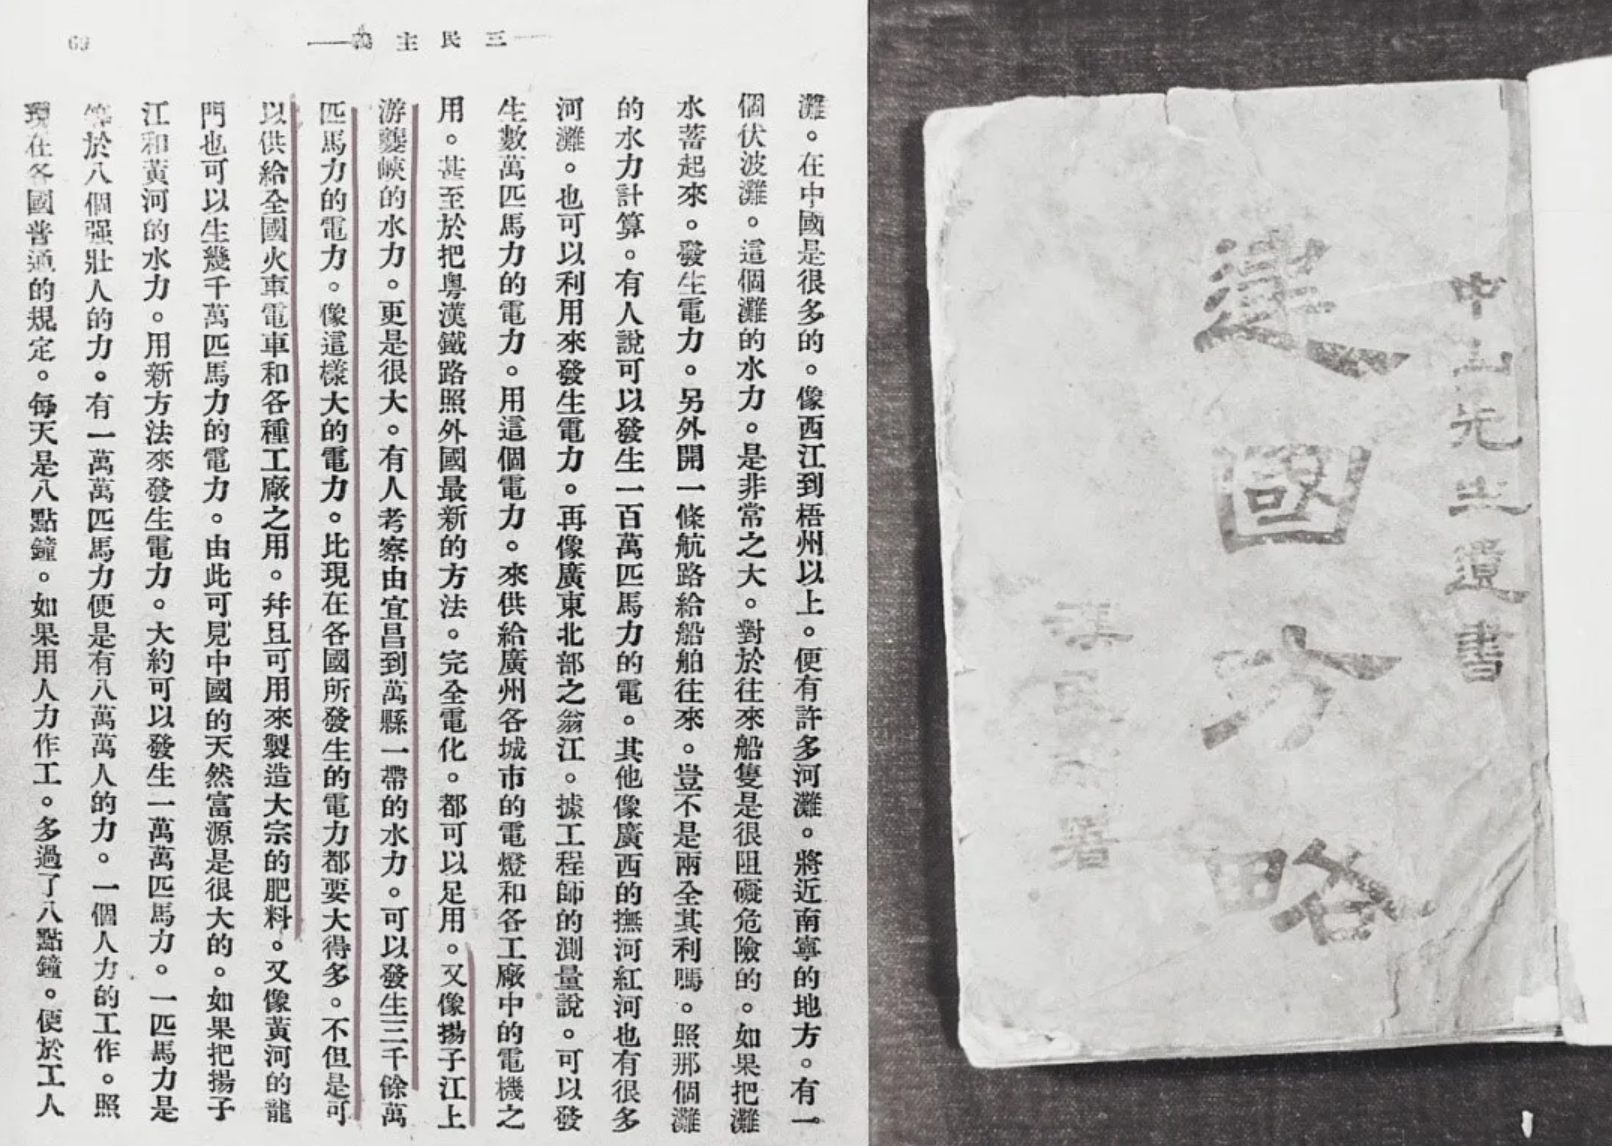 三民主義
69
灘。在中國是很多的。像西江到梧州以上。便有許多河灘。將近南寧的地方。有一
個伏波灘。這個灘的水力。是非常之大。對於往來船隻是很阻礙危險的。如果把灘
水蓄起來。發生電力。另外開一條航路給船舶往來。豈不是兩全其利嗎。照那個灘
的水力計算。有人說可以發生一百萬匹馬力的電。其他像廣西的撫河紅河也有很多
河灘。也可以利用來發生電力。再像廣東北部之翁江。據工程師的測量說。可以發
生數萬匹馬力的電力。用這個電力。來供給廣州各城市的電燈和各工廠中的電機之
用。甚至於把粵漢鐵路照外國最新的方法。完全電化。都可以足用。又像揚子江上
游夔峽的水力。更是很大。有人考察由宜昌到萬縣一帶的水力。可以發生三千餘萬
匹馬力的電力。像這樣大的電力。比現在各國所發生的電力都要大得多。不但是可
以供給全國火車電車和各種工廠之用。幷且可用來製造大宗的肥料。又像黃河的龍
門也可以生幾千萬匹馬力的電力。由此可見中國的天然富源是很大的。如果把揚子
江和黃河的水力。用新方法來發生電力。大約可以發生一萬萬匹馬力。一匹馬力是
等於八個强壯人的力。有一萬萬匹馬力便是有八萬萬人的力。一個人力的工作。照
現在各國普通的規定。每天是八點鐘。如果用人力作工。多過了八點鐘。便於工人
中山先生遺書
建國方略
漢民署